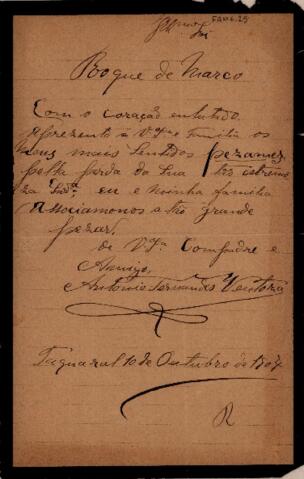 FAM6.25
Illmo Snr
Roque de Marco
Com o coração enlutado
Apresento á V. Sª e familia os
meus mais sentidos pezames
pella perda da sua tão estremo
za eu e minha familia
Associamonos a tão grande
pezar.
de V. Sª Compadre e
Amigo,
Antonio Fernandes Ventura
Taquaral 10 de Outubro de 1907
R